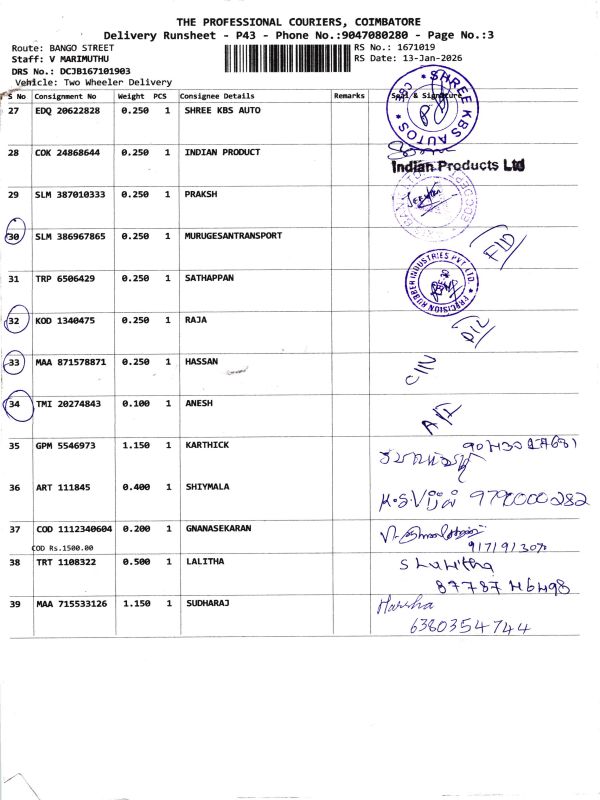 THE PROFESSIONAL COURIERS, COIMBATORE
Delivery Runsheet - P43 - Phone No.:9047080280 - Page No.:3
Route: BANGO STREET
RS No.: 1671019
Staff: V MARIMUTHU
RS Date: 13-Jan-2026
DRS No.: DCJB167101903
Vehicle: Two Wheeler Delivery
S No Consignment No Weight PCS Consignee Details Remarks Seal & Signature
27 EDQ 20622828 0.250 1 SHREE KBS AUTO
* SHREE KBS AUTOS * CBE
28 COK 24868644 0.250 1 INDIAN PRODUCT
Indian Products Ltd
29 SLM 387010333 0.250 1 PRAKSH
30 SLM 386967865 0.250 1 MURUGESANTRANSPORT
31 TRP 6506429 0.250 1 SATHAPPAN
PRECISION RUBBER INDUSTRIES PVT. LTD.
32 KOD 1340475 0.250 1 RAJA
33 MAA 871578871 0.250 1 HASSAN
34 TMI 20274843 0.100 1 ANESH
35 GPM 5546973 1.150 1 KARTHICK
36 ART 111845 0.400 1 SHIYMALA
9790000282
37 COD 1112340604 0.200 1 GNANASEKARAN
COD Rs.1500.00
38 TRT 1108322 0.500 1 LALITHA
39 MAA 715533126 1.150 1 SUDHARAJ
Harsha
6380354744